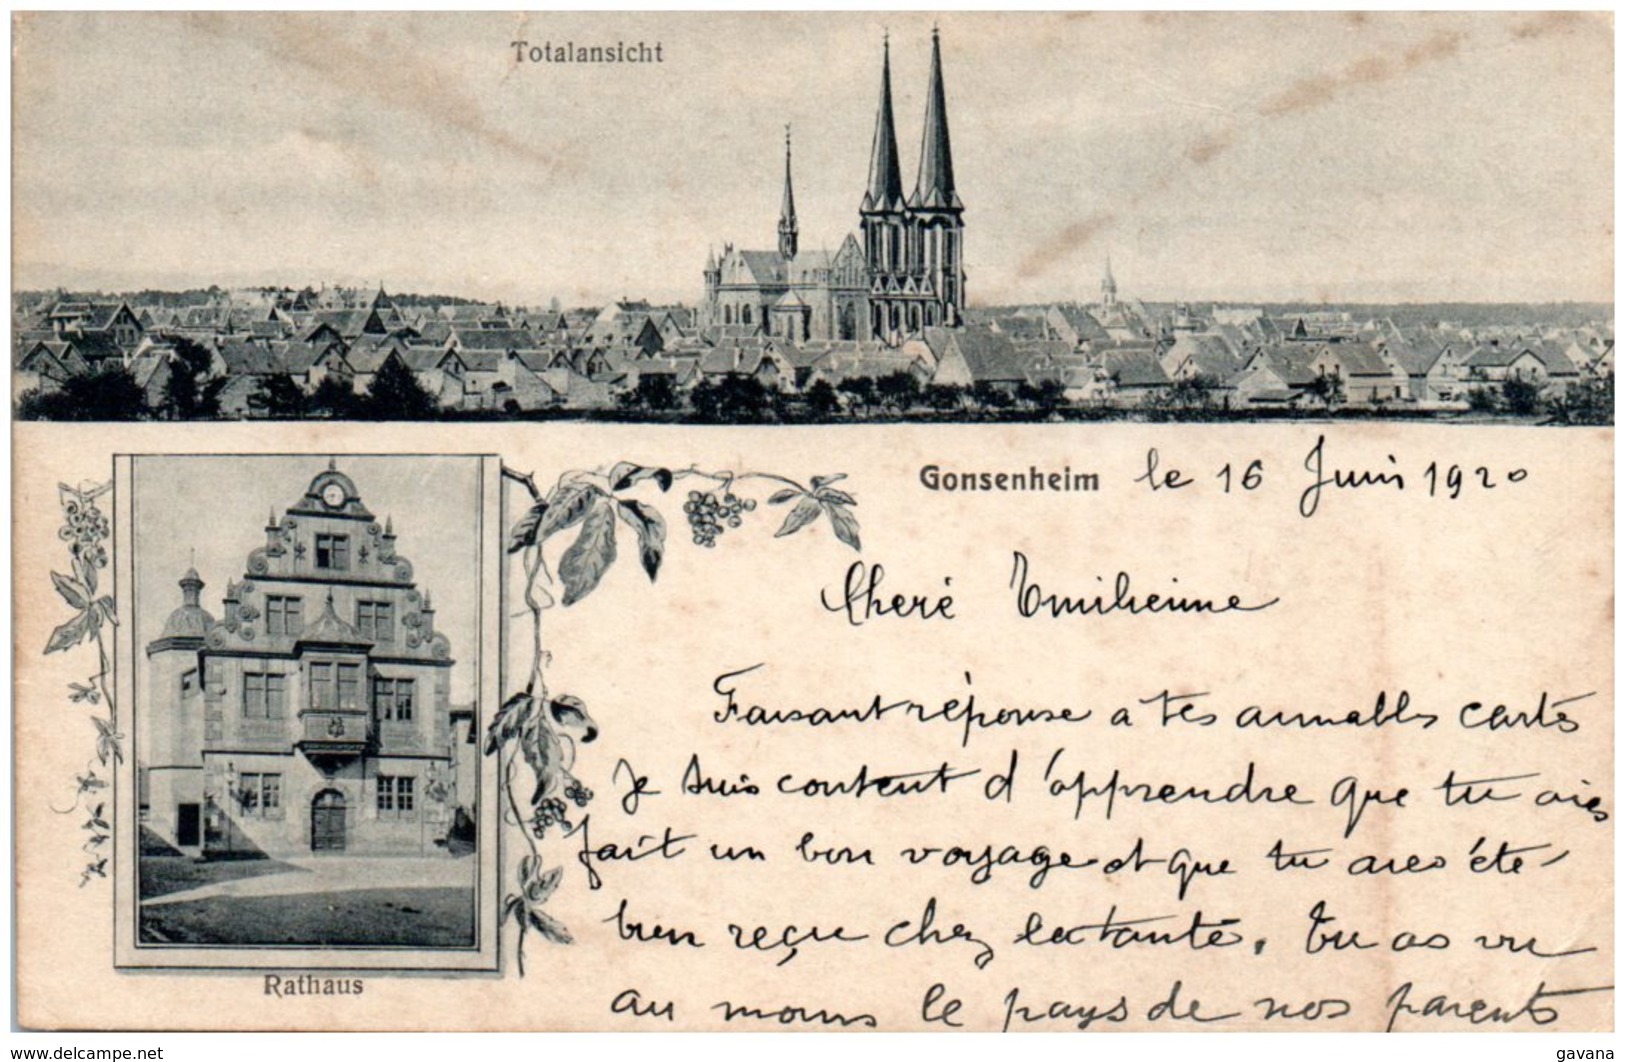 Totalansicht
Gonsenheim le 16 Juin 1920
Cheré Emilienne
Faisant réponse a tes aimables cartes
Je suis content d'apprendre que tu aies
fait un bon voyage et que tu aies été
bien reçue chez la tante. Tu as vu
au moins le pays de nos parents
Rathaus
www.delcampe.net
gavana